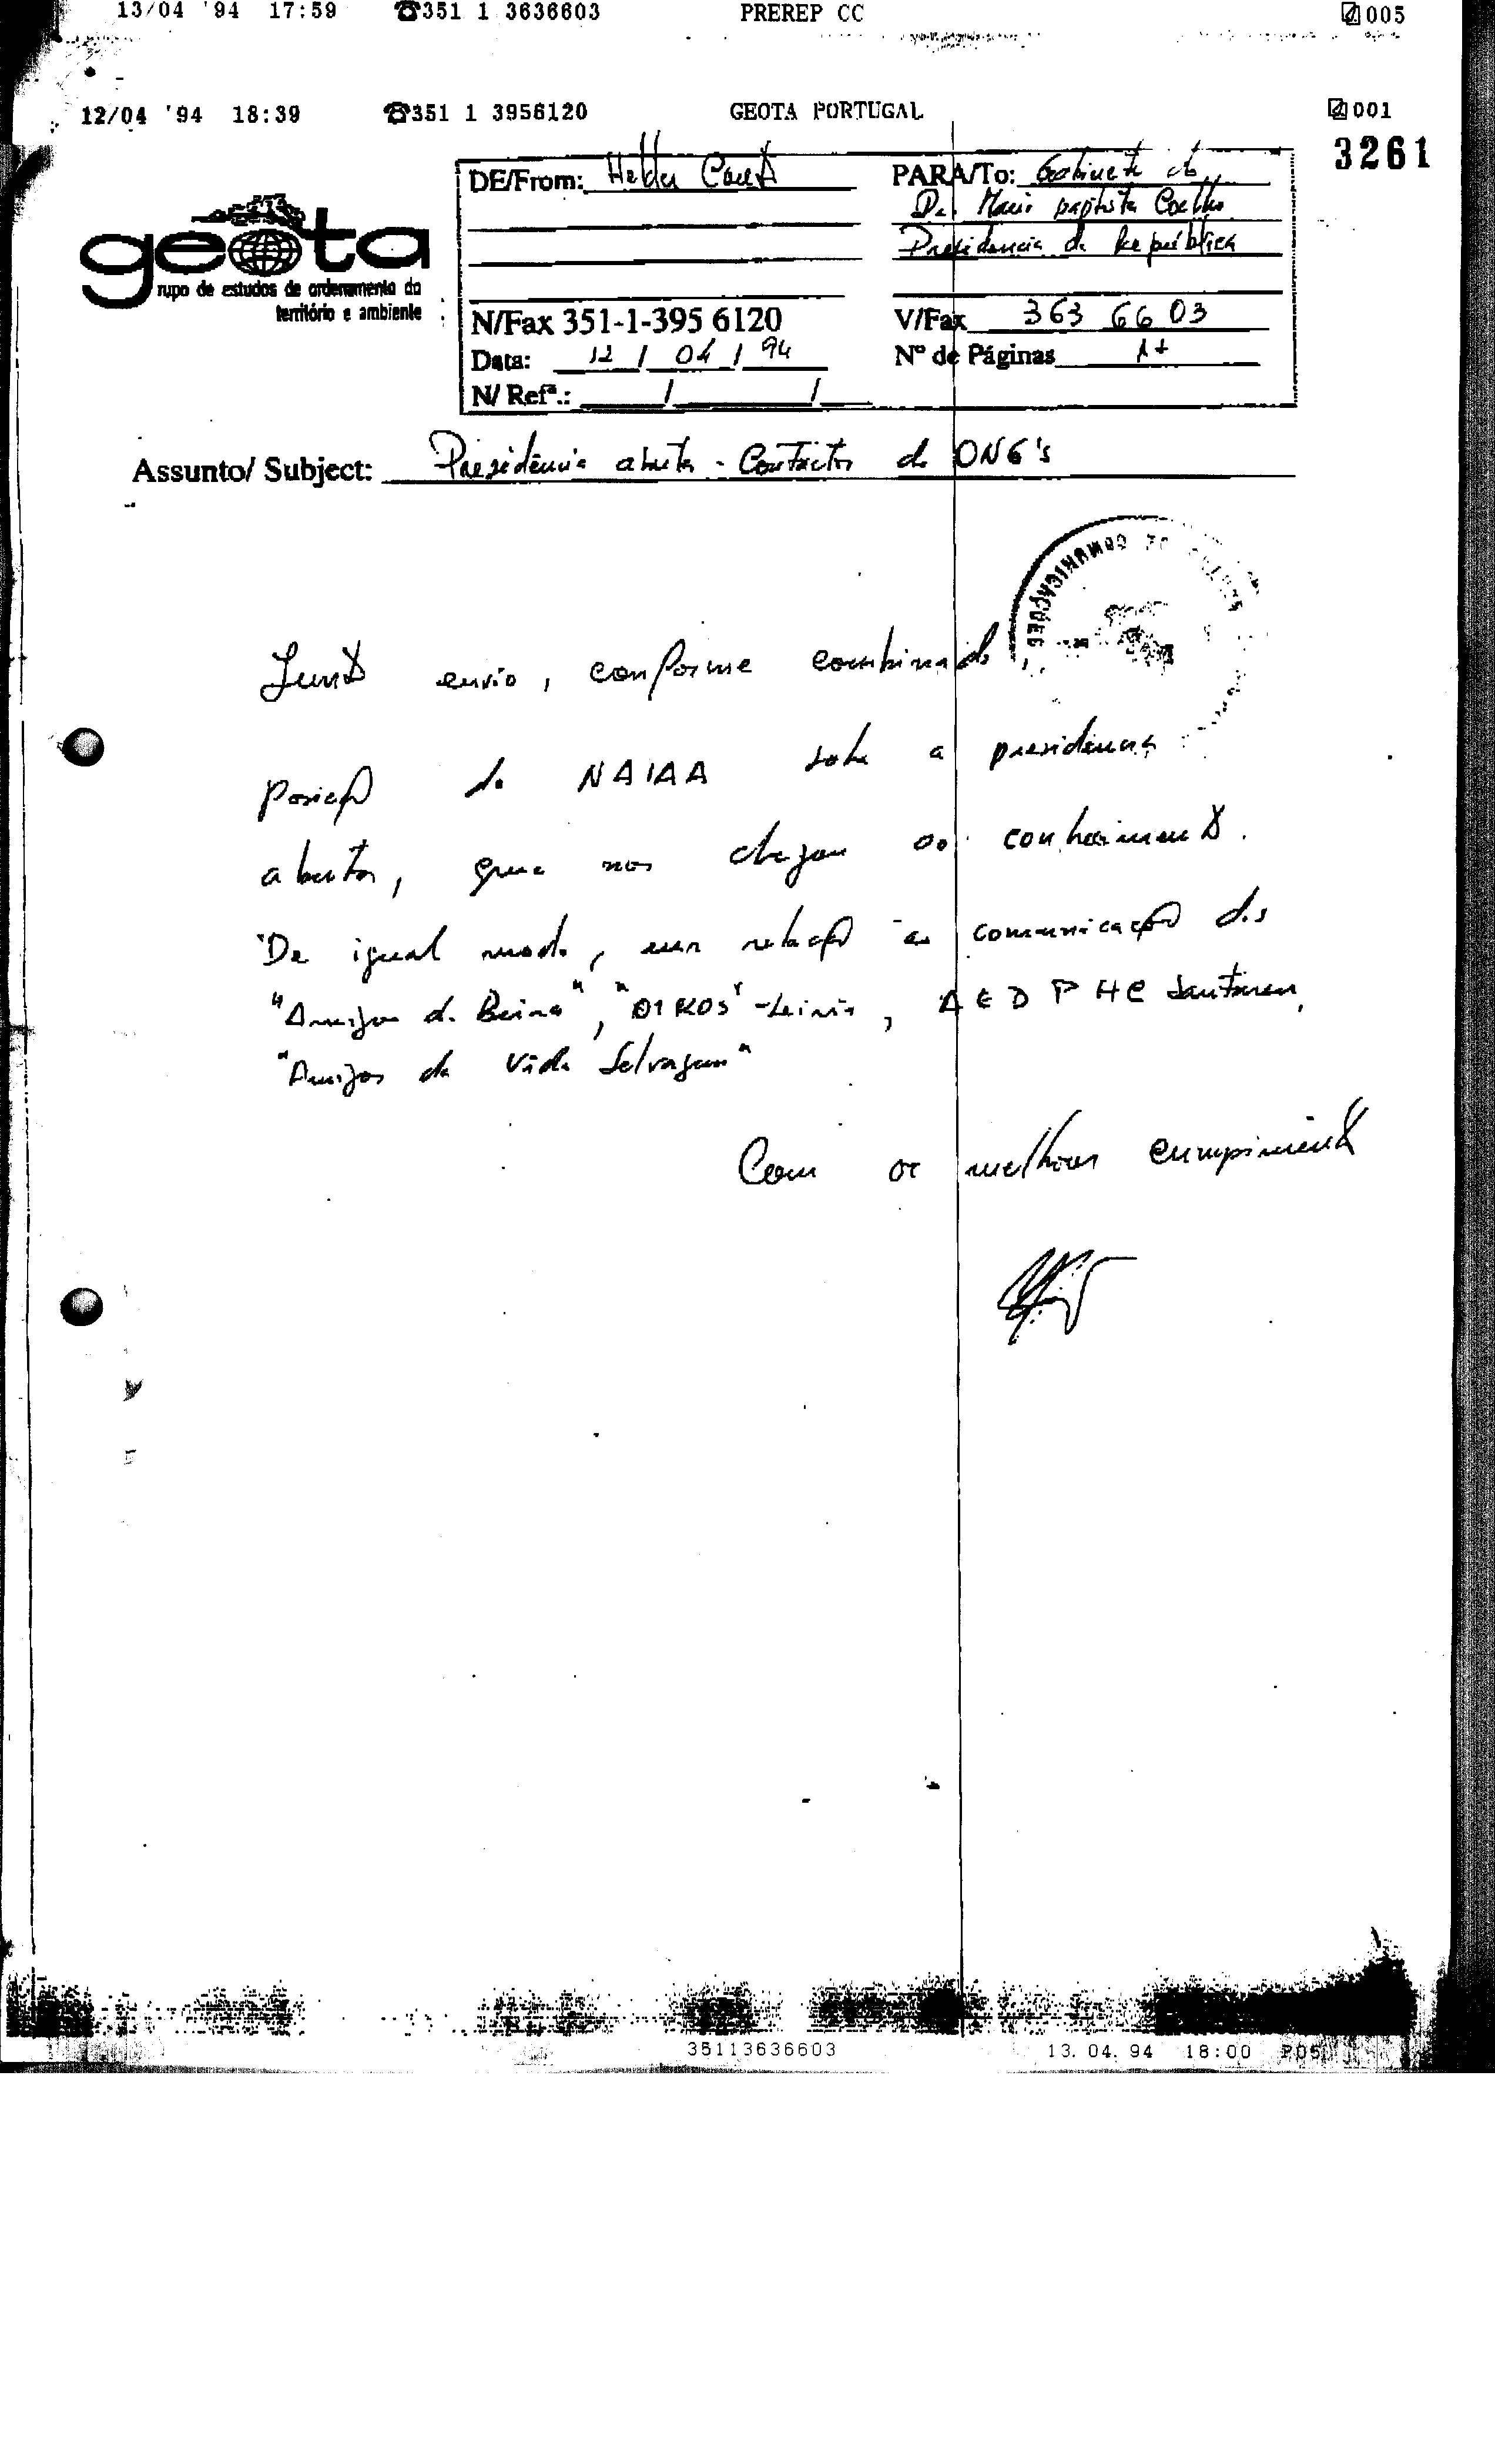 13/04 '94 17:59 ☎351 1 3636603 PREREP CC 005
12/04 '94 18:39 ☎351 1 3956120 GEOTA PORTUGAL 001
3261
geota
grupo de estudos de ordenamento do
território e ambiente
DE/From: Helder
PARA/To: Gabinete do
Dr. Mario baptista Coelho
Presidencia da República
N/Fax 351-1-395 6120
V/Fax 363 66 03
Data: 12 / 04 / 94
Nº de Páginas 1+
N/ Refª.: / /
Assunto/ Subject: Presidência aberta - Contactos de ONG's
CENTRO DE COMUNICAÇÕES
Junto envio, conforme combinado,
posição do NAIAA sobre a presidência
aberta, que nos chegou ao conhecimento.
De igual modo, em relação às comunicação dos
"Amigos da Beira", "OIKOS" - Leiria, AEDPHC Santarem,
"Amigos da Vida Selvagem"
Com os melhores cumprimentos
35113636603 13.04.94 18:00 P05